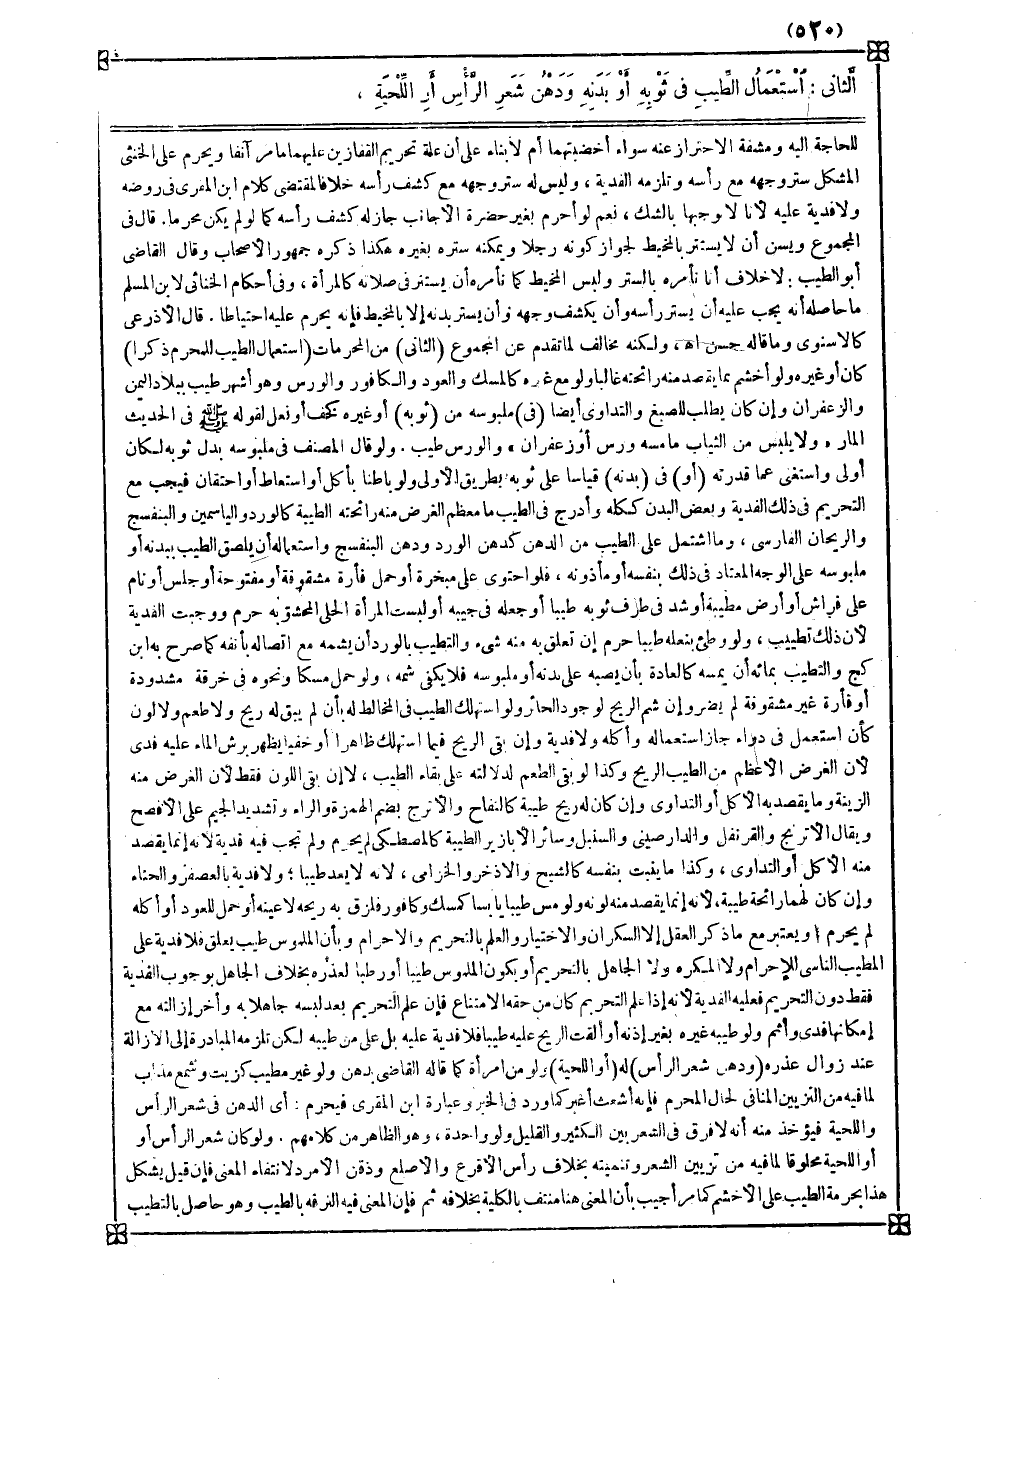 (٥٢٠)
الثَّانِى : اسْتِعْمَالُ الطِّيبِ فِى ثَوْبِهِ أَوْ بَدَنِهِ وَدَهْنُ شَعَرِ الرَّأْسِ أَوِ اللِّحْيَةِ ،
للحاجة اليه ومشقة الاحتراز عنه سواء أخضبتهما أم لا بناء على أن علة تحريم القفازين عليها ما مر آنفا ويحرم على الخنثى
المشكل ستر وجهه مع رأسه وتلزمه الفدية ، وليس له ستر وجهه مع كشف رأسه خلافا لمقتضى كلام ابن المقرى فى روضه
ولا فدية عليه لأنا لا نوجبها بالشك ، نعم لو أحرم بغير حضرة الأجانب جاز له كشف رأسه كما لو لم يكن محرما. قال فى
المجموع ويسن أن لا يستتر بالمخيط لجواز كونه رجلا ويمكنه ستره بغيره هكذا ذكره جمهور الأصحاب وقال القاضى
أبو الطيب : لا خلاف أنا نأمره بالستر ولبس المخيط كما نأمره أن يستتر فى صلاته كالمرأة ، وفى أحكام الخناثى لابن المسلم
ما حاصله أنه يجب عليه أن يستر رأسه وأن يكشف وجهه وأن يستر بدنه إلا بالمخيط فإنه يحرم عليه احتياطا . قال الأذرعى
كالاسنوى وما قاله حسن اه ، ولكنه مخالف لما تقدم عن المجموع (الثانى) من المحرمات (استعمال الطيب للمحرم ذكرا)
كان أو غيره ولو أخشم بما يقصد منه رائحته غالبا ولو مع غيره كالمسك والعود والكافور والورس وهو أشهر طيب ببلاد اليمن
والزعفران وإن كان يطلب للصبغ والتداوى أيضا (فى) ملبوسه من (ثوبه) أو غيره كخف أو نعل لقوله ﷺ فى الحديث
المار « ولا يلبس من الثياب ما مسه ورس أو زعفران » والورس طيب . ولو قال المصنف فى ملبوسه بدل ثوبه لكان
أولى واستغنى عما قدرته (أو) فى (بدنه) قياسا على ثوبه بطريق الأولى ولو باطنا بأكل أو استعاط أو احتقان فيجب مع
التحريم فى ذلك الفدية وبعض البدن ككله وأدرج فى الطيب ما معظم الغرض منه رائحته الطيبة كالورد والياسمين والبنفسج
والريحان الفارسى ، وما اشتمل على الطيب من الدهن كدهن الورد ودهن البنفسج واستعماله أن يلصق الطيب ببدنه أو
ملبوسه على الوجه المعتاد فى ذلك بنفسه أو مأذونه ، فلو احتوى على مبخرة أو حمل فأرة مشقوقة أو مفتوحة أو جلس أو نام
على فراش أو أرض مطيبة أو شد فى طرف ثوبه طيبا أو جعله فى جيبه أو لبست المرأة الحلى المحشو به حرم ووجبت الفدية
لأن ذلك تطييب ، ولو وطئ بنعله طيبا حرم إن تعلق به منه شىء والتطيب بالورد أن يشمه مع اتصاله بأنفه كما صرح به ابن
كج والتطيب بمائه أن يمسه كالعادة بأن يصبه على بدنه أو ملبوسه فلا يكفى شمه ، ولو حمل مسكا ونحوه فى خرقة مشدودة
أو فأرة غير مشقوقة لم يضر وإن شم الريح لوجود الحائل ولو استهلك الطيب فى المخالط له بأن لم يبق له ريح ولا طعم ولا لون
كأن استعمل فى دواء جاز استعماله وأكله ولا فدية وإن بقى الريح فيما استهلك ظاهرا أو خفيا يظهر برش الماء عليه فدى
لأن الغرض الأعظم من الطيب الريح وكذا لو بقى الطعم لدلالته على بقاء الطيب ، لا إن بقى اللون فقط لأن الغرض منه
الزينة وما يقصد به الأكل أو التداوى وإن كان له ريح طيبة كالتفاح والأترج بضم الهمزة والراء وتشديد الجيم على الأفصح
ويقال الأترنج والقرنفل والدارصينى والسنبل وسائر الأبازير الطيبة كالمصطكى لم يحرم ولم تجب فيه فدية لأنه إنما يقصد
منه الأكل أو التداوى ، وكذا ما ينبت بنفسه كالشيح والإذخر والخزامى ، لأنه لا يعد طيبا ؛ ولا فدية بالعصفر والحناء
وإن كان لهما رائحة طيبة، لأنه إنما يقصد منه لونه ولو مس طيبا يابسا كمسك وكافور فلزق به ريحه لا عينه أو حمل العود أو أكله
لم يحرم ! ويعتبر مع ما ذكر العقل إلا السكران والاختيار والعلم بالتحريم والاحرام وبأن الملموس طيب يعلق فلا فدية على
المطيب الناسى للإحرام ولا المكره ولا الجاهل بالتحريم أو بكون الملموس طيبا أو رطبا لعذره بخلاف الجاهل بوجوب الفدية
فقط دون التحريم فعليه الفدية لأنه إذا علم التحريم كان من حقه الامتناع فإن علم التحريم بعد لبسه جاهلا به وأخر إزالته مع
إمكانها فدى وأثم ولو طيبه غيره بغير إذنه أو ألقت الريح عليه طيبا فلا فدية عليه بل على من طيبه لكن تلزمه المبادرة إلى الازالة
عند زوال عذره (ودهن شعر الرأس) له (أو اللحية) ولو من امرأة كما قاله القاضى بدهن ولو غير مطيب كزيت وشمع مذاب
لما فيه من التزيين المنافى لحال المحرم فإنه أشعث أغبر كما ورد فى الخبر وعبارة ابن المقرى فيحرم : أى الدهن فى شعر الرأس
واللحية فيؤخذ منه أنه لا فرق فى الشعر بين الكثير والقليل ولو واحدة ، وهو الظاهر من كلامهم . ولو كان شعر الرأس أو
أو اللحية محلوقا لما فيه من تزيين الشعر وتنميته بخلاف رأس الأقرع والأصلع وذقن الأمرد لانتفاء المعنى فإن قيل يشكل
هذا بحرمة الطيب على الأخشم كما مر أجيب بأن المعنى هنا منتف بالكلية بخلافه ثم فإن المعنى فيه الترفه بالطيب وهو حاصل بالتطيب